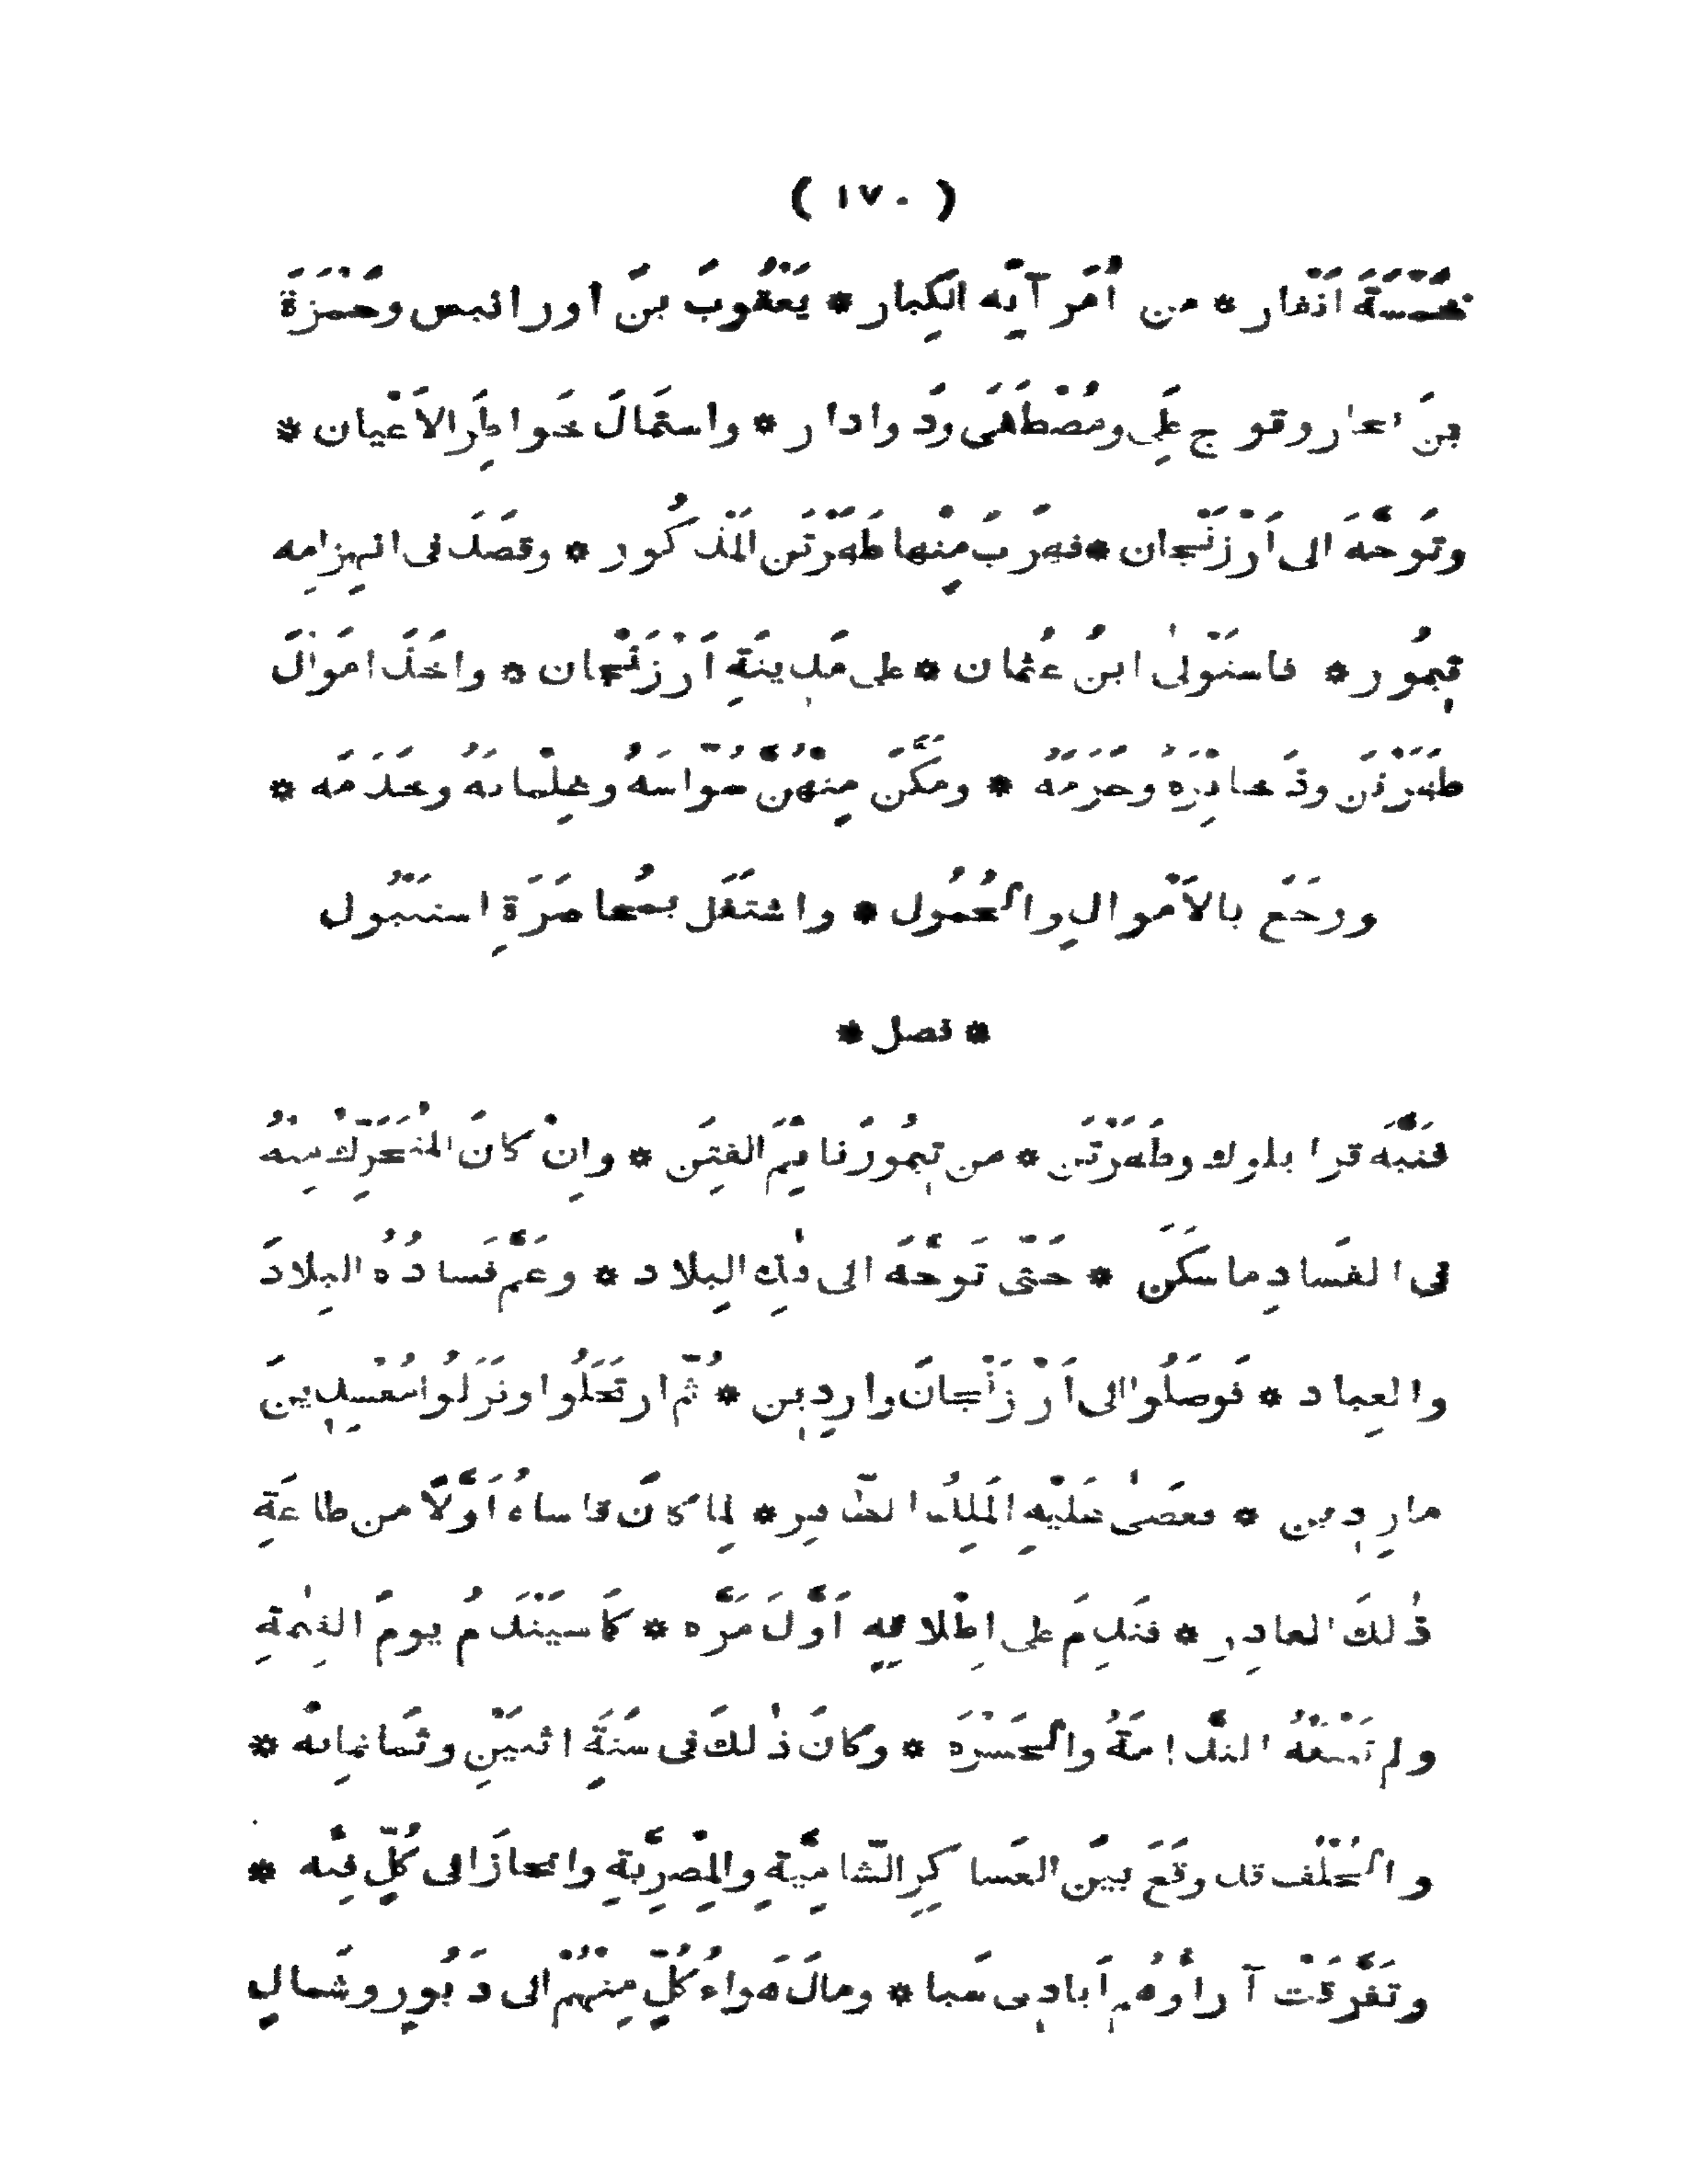 ( ١٧٠ )
خَمْسَةَ اَنْفار * من اُمَرآيِه الكِبار * يَعْقُوبَ بنَ اورانبس وحَمْزَةَ
بنَ وقوج عَلِى ومُصْطَفَى ودَوادار * واستَمالَ خَواطِرَ الاَعْيان *
وتَوجَّهَ الى اَرْزَنْجان * فهَرَبَ مِنْها طَهَرْتَن المَذْكُور * وقصَدَ فى انهِزامِه
تِيمُور * فاستَوْلىٰ ابنُ عُثمان * على مَدِينَةِ اَرْزَنْجان * واخَذَ امَوالَ
طَهَرْتَن وذَخائِرَهُ وحَرَمَهُ * ومَكَّنَ مِنْهُنَّ سُوّاسَهُ وغِلْمانَهُ وخَدَمَه *
ورجَعَ بالاَمْوالِ والحُمُول * واشتَغَل بمُحاصَرَةِ استَنْبُول
* فصل *
فنَبَّهَ قرا يلوك وطَهَرْتَن * من تِيمُورَ نايِمَ الفِتَن * واِنْ كانَ المُتَحَرِّك مِنهُ
فى الفَسادِ ما سكَن * حَتّى توجَّهَ الى تِلك البِلاد * وعَمَّ فَسادُهُ البِلادَ
والعِباد * فَوصَلُوا الى اَرْزَنْجانَ واردِين * ثُمّ ارتَحَلُوا ونَزَلُوا مُفْسِدِينَ
مارِدِين * فعَصَىٰ عَلَيْهِ المَلِكُ الظّاهِر * لِما كانَ قاساهُ اَوَّلًا من طاعَةِ
ذٰلكَ الغادِر * فنَدِمَ على اِطْلاقِه اَوَّلَ مَرَّه * كَما سيَنْدَمُ يومَ القِيٰمَةِ
ولم تَنْفَعْهُ النَّدامَةُ والحَسْرَه * وكانَ ذٰلكَ فى سَنَةِ اثنَيْنِ وثَمانِمِائه *
والخُلْف قد وقَعَ بينَ العَساكِرِ الشّامِيَّةِ والمِصْرِيَّةِ وانحازَ الى كُلٍّ فِئَه *
وتَفَرَّقَتْ آراؤُهم اَيادِى سَبا * ومالَ هَواءُ كُلٍّ مِنْهُمْ الى دَبُورٍ وشَمالٍ